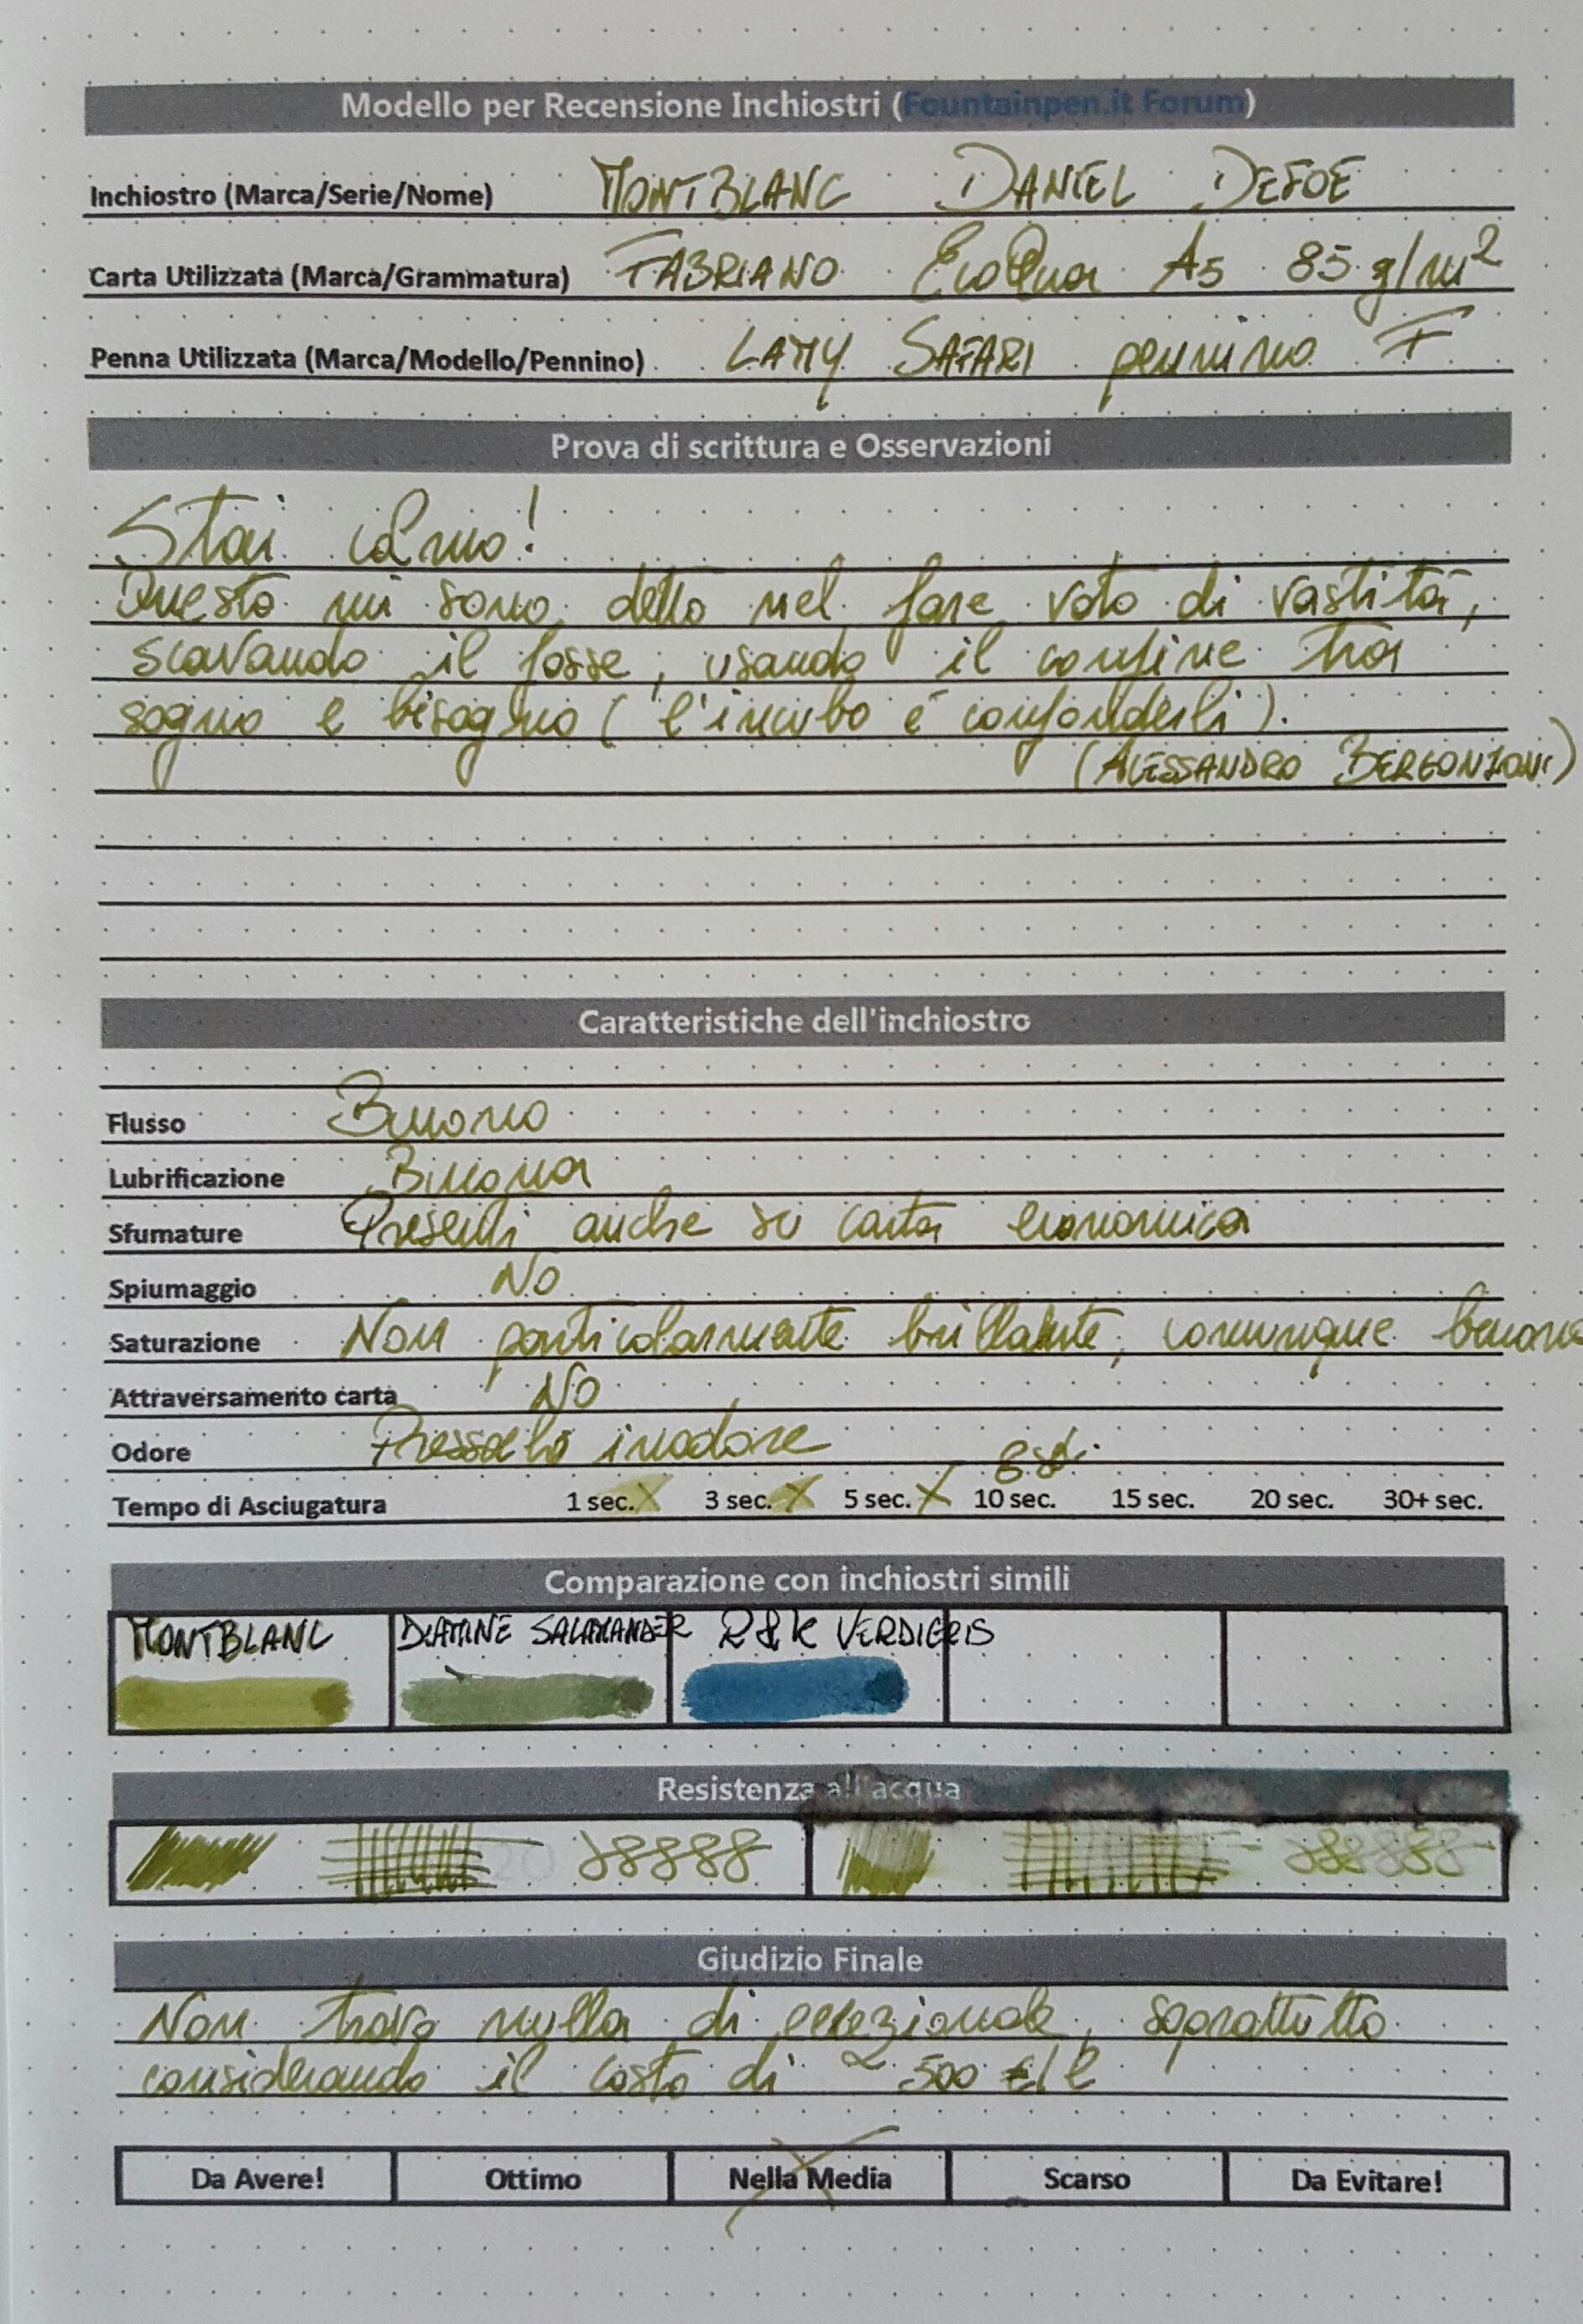 Modello per Recensione Inchiostri (Fountainpen.it Forum)
Inchiostro (Marca/Serie/Nome) MONTBLANC DANIEL DEFOE
Carta Utilizzata (Marca/Grammatura) FABRIANO EcoQua A5 85 g/m²
Penna Utilizzata (Marca/Modello/Pennino) LAMY SAFARI pennino F
Prova di scrittura e Osservazioni
Stai calmo!
Questo mi sono detto nel fare voto di vastità,
scavando il fosse, usando il confine tra
sogno e bisogno (l'incubo è confonderli).
(ALESSANDRO BERGONZONI)
Caratteristiche dell'inchiostro
Flusso Buono
Lubrificazione Buona
Sfumature Presenti anche su carta economica
Spiumaggio No
Saturazione Non particolarmente brillante, comunque buona
Attraversamento carta NO
Odore Pressochè inodore
8 sec.
Tempo di Asciugatura 1 sec. X 3 sec. X 5 sec. X 10 sec. 15 sec. 20 sec. 30+ sec.
Comparazione con inchiostri simili
MONTBLANC DIAMINE SALAMANDER R&K VERDIGRIS
Resistenza all'acqua
88888 88888
Giudizio Finale
Non trovo nulla di eccezionale, soprattutto
considerando il costo di ~ 500 €/l
Da Avere! Ottimo Nella Media Scarso Da Evitare!